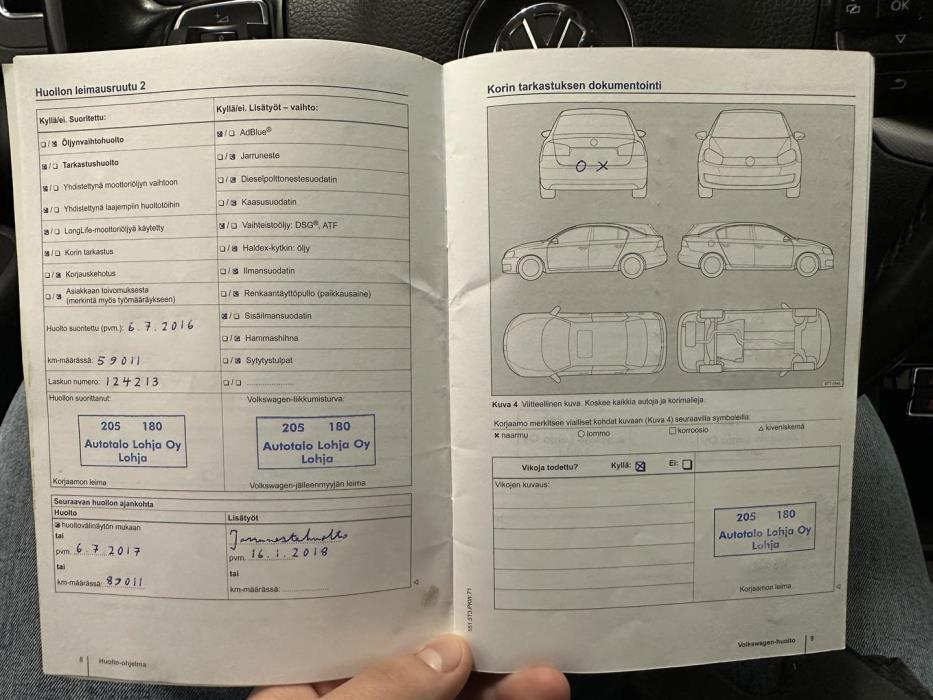 OK
Huollon leimausruutu 2
Kyllä/ei. Suoritettu:
Kyllä/ei. Lisätyöt – vaihto:
Öljynvaihtohuolto
AdBlue®
Tarkastushuolto
Jarruneste
Yhdistettynä moottoriöljyn vaihtoon
Dieselpolttonestesuodatin
Yhdistettynä laajempiin huoltotöihin
Kaasusuodatin
LongLife-moottoriöljyä käytetty
Vaihteistoöljy: DSG®, ATF
Korin tarkastus
Haldex-kytkin: öljy
Korjauskehotus
Ilmansuodatin
Asiakkaan toivomuksesta
(merkintä myös työmääräykseen)
Renkaantäyttöpullo (paikkausaine)
Sisäilmansuodatin
Huolto suoritettu (pvm.): 6.7.2016
Hammashihna
km-määrässä: 59011
Sytytystulpat
Laskun numero: 124213
Huollon suorittanut:
Volkswagen-liikkumisturva:
205 180
Autotalo Lohja Oy
Lohja
205 180
Autotalo Lohja Oy
Lohja
Korjaamon leima
Volkswagen-jälleenmyyjän leima
Seuraavan huollon ajankohta
Huolto
Lisätyöt
huoltovälinäytön mukaan
tai
Jarrunestehuolto
pvm. 6.7.2017
pvm. 16.1.2018
tai
tai
km-määrässä: 89011
km-määrässä:
8 Huolto-ohjelma
Korin tarkastuksen dokumentointi
O X
Kuva 4 Viitteellinen kuva. Koskee kaikkia autoja ja korimalleja.
Korjaamo merkitsee vialliset kohdat kuvaan (Kuva 4) seuraavilla symboleilla:
× naarmu ○ lommo □ korroosio △ kiveniskemä
Vikoja todettu? Kyllä: Ei:
Vikojen kuvaus:
205 180
Autotalo Lohja Oy
Lohja
Korjaamon leima
151.5T3.PKW.71
Volkswagen-huolto 9